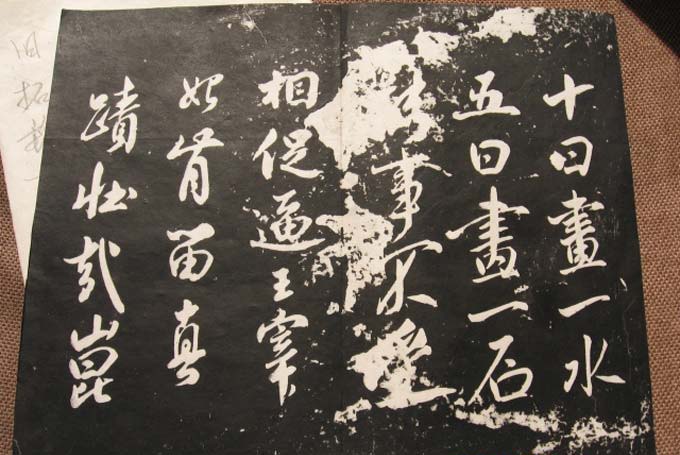 十日畫一水
五日畫一石
能事不受
相促逼王宰
始肯留真
蹟壯哉崑
旧拓